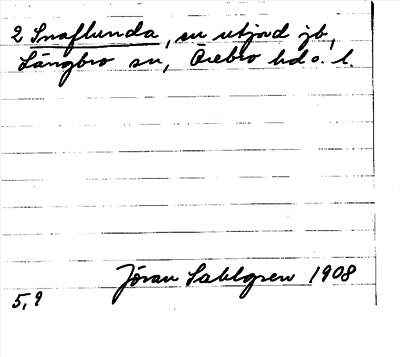 2 Snaflunda, en utjord jb,
Längbro sn, Örebro hd o. l.
Jöran Sahlgren 1908
5,9